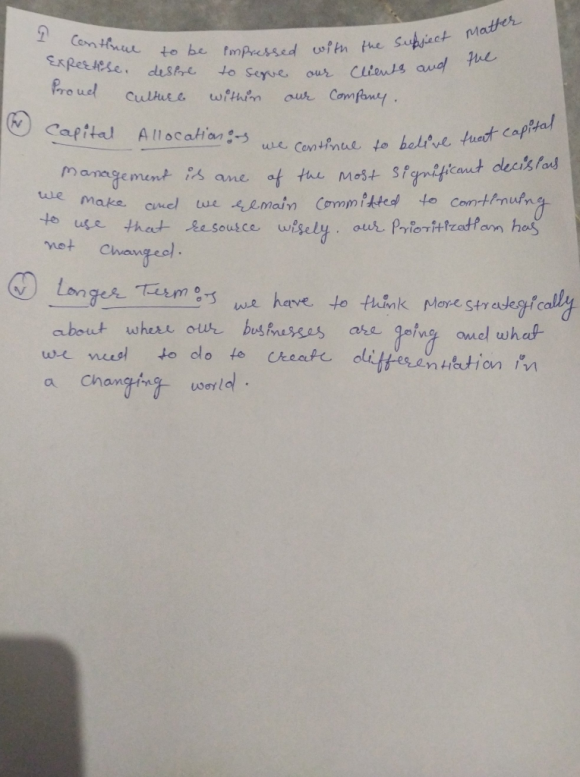 I Continue to be impressed with the subject matter
Expertise, desire to serve our clients and the
Proud culture within our Company.
(iv) Capital Allocation :- we continue to belive that capital
management is one of the most significant decisions
we make and we remain committed to continuing
to use that resource wisely. our Prioritization has
not changed.
(v) Longer Term :- we have to think more strategically
about where our businesses are going and what
we need to do to create differentiation in
a changing world.